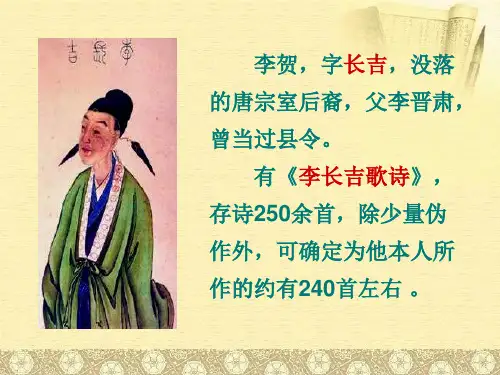 李贺，字长吉，没落
的唐宗室后裔，父李晋肃，
曾当过县令。
有《李长吉歌诗》，
存诗250余首，除少量伪
作外，可确定为他本人所
作的约有240首左右 。